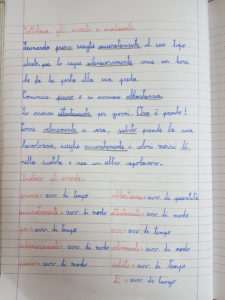 Sottolinea gli avverbi e analizzali.
Leonardo prima sceglie accuratamente il suo tipo
ideale, poi lo segue silenziosamente come un leone
che dà la caccia alla sua preda.
Comincia piano e si avvicina abbastanza.
Lo osserva attentamente per giorni. Ora è pronto!
Corre velocemente a casa, subito prende la sua
lavoro, sceglie accuratamente i colori messi lì
nella scatola e crea un altro capolavoro.
Analizzo gli avverbi.
prima = avv. di tempo abbastanza = avv. di quantità
accuratamente = avv. di modo attentamente = avv. di modo
poi = avv. di tempo ora = avv. di tempo
silenziosamente = avv. di modo velocemente = avv. di modo
piano = avv. di modo subito = avv. di tempo
Lì = avv. di luogo